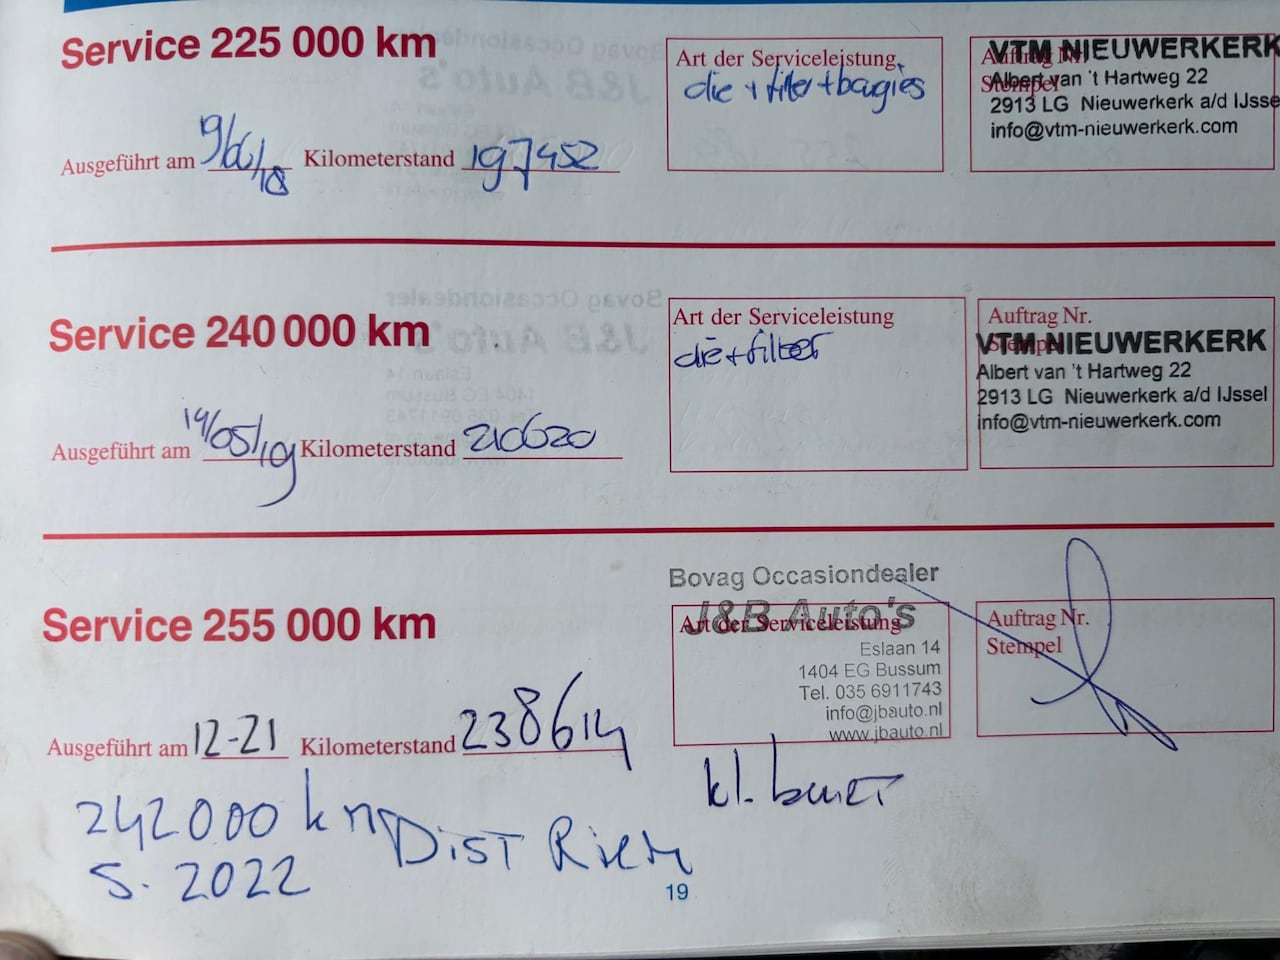 Service 225 000 km
Ausgeführt am 9/06/18 Kilometerstand 197452
Art der Serviceleistung
olie + filter + bougies
Auftrag Nr.
Stempel
VTM NIEUWERKERK
Albert van 't Hartweg 22
2913 LG Nieuwerkerk a/d IJssel
info@vtm-nieuwerkerk.com
Service 240 000 km
Ausgeführt am 14/05/19 Kilometerstand 210620
Art der Serviceleistung
olie + filter
Auftrag Nr.
Stempel
VTM NIEUWERKERK
Albert van 't Hartweg 22
2913 LG Nieuwerkerk a/d IJssel
info@vtm-nieuwerkerk.com
Service 255 000 km
Ausgeführt am 12-21 Kilometerstand 238614
Bovag Occasiondealer
J&B Auto's
Art der Serviceleistung
Eslaan 14
1404 EG Bussum
Tel. 035 6911743
info@jbauto.nl
www.jbauto.nl
Auftrag Nr.
Stempel
kl. beurt
242000 km Dist Riem
5. 2022
19